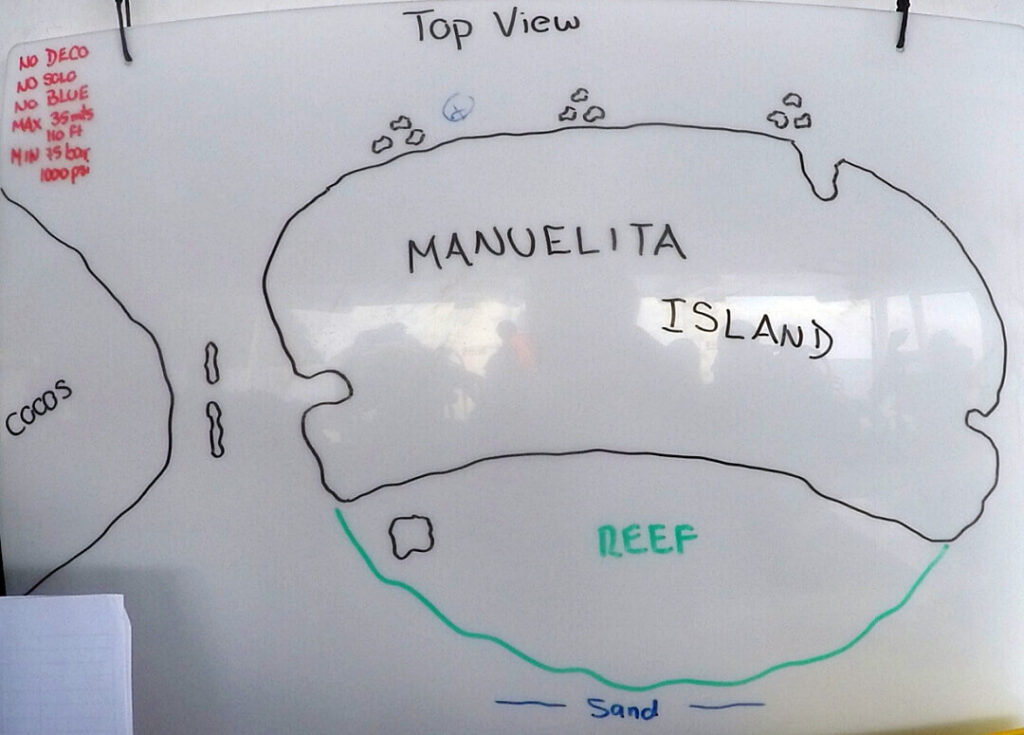 Top View
NO DECO
NO SOLO
NO BLUE
MAX 35mts
110 Ft
MIN 75 bar
1000 psi
MANUELITA
ISLAND
COCOS
REEF
Sand